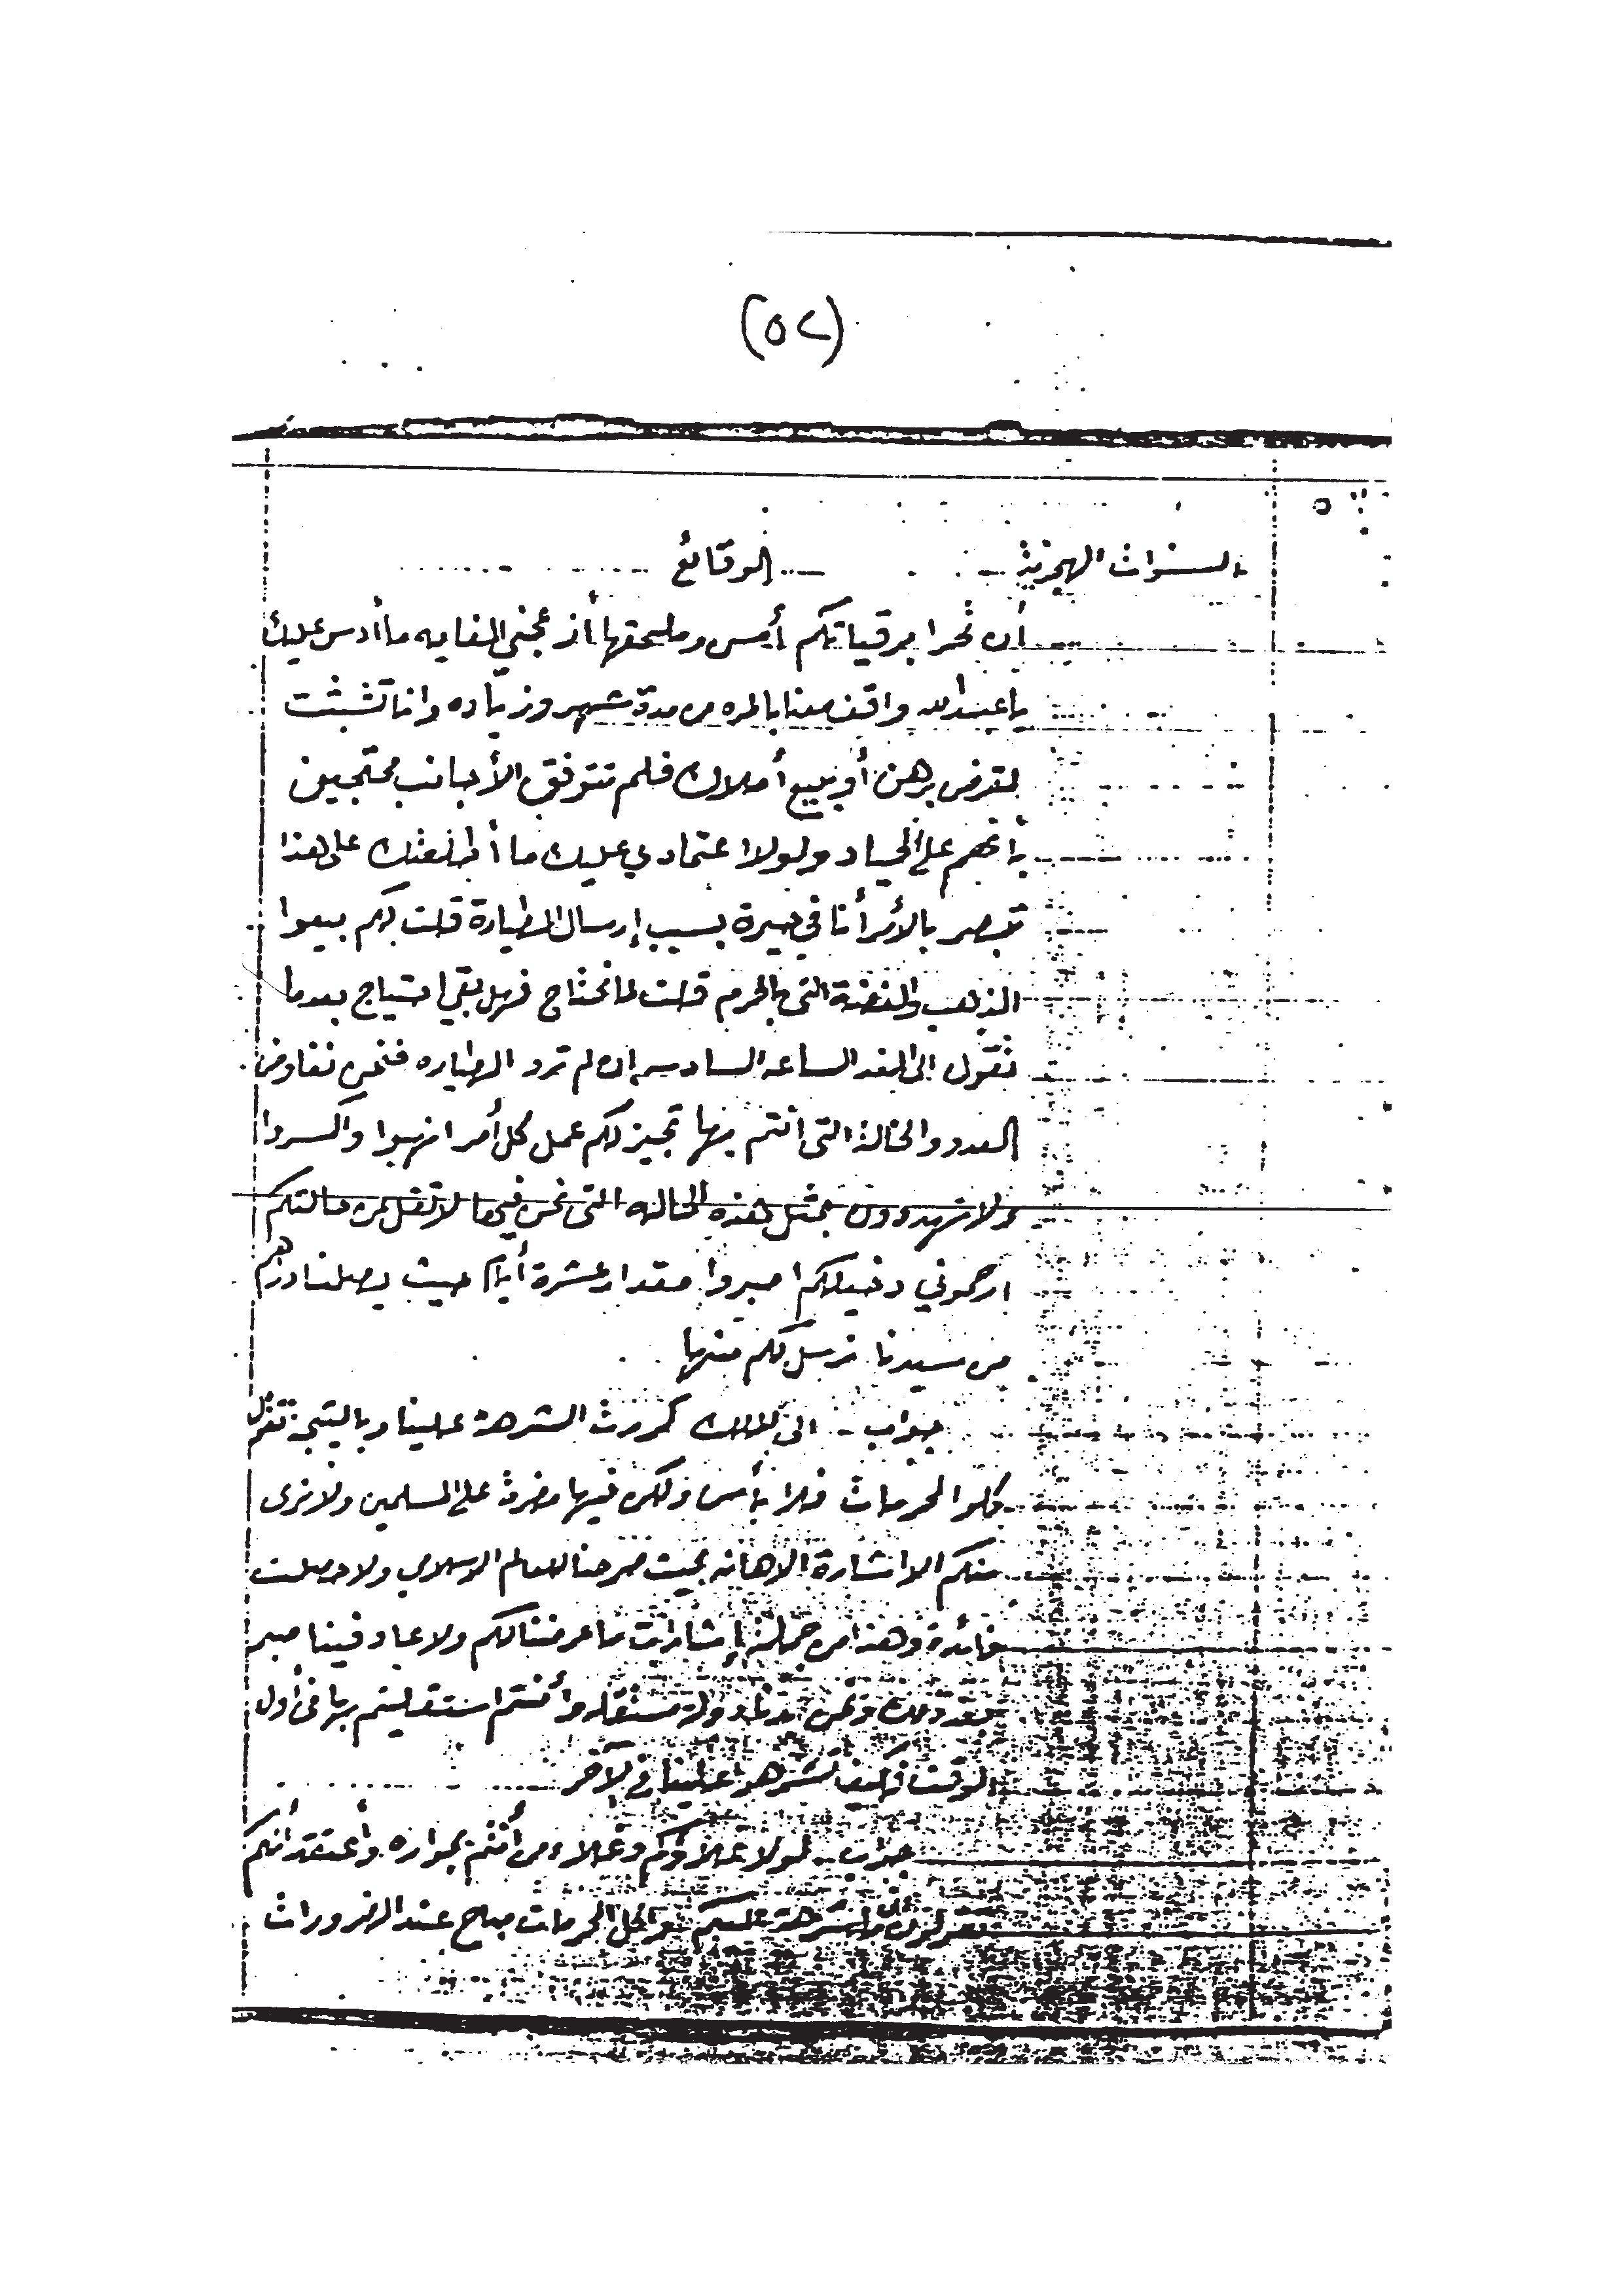 (٥٢)
السنوات الهجرية الوقائع
أن نحرا برقياتكم أمس وملحقها أزعجني للغايه ما أدس عليك
يا عبدالله واقف معنا بالمره من مدة شهر وزياده وانا تشبثت
لقرض برهن أو بيع أملاك فلم تتوفق الأجانب محتجين
بأنهم على الحياد ولولا اعتمادي عليك ما أطلعتك على هذا
تبصر بالأمر أنا في حيرة بسبب إرسال الطيارة قلت لهم بيعوا
الذهب والفضة التى بالحرم قلت لما نحتاج فهل بقي احتياج بعدما
نقول الى الغد الساعه السادسه ان لم ترد الطياره فنحن نفاوض
العدو والحالة التى انتم بها تجيز لكم عمل كل أمر انهبوا واكسروا
ولا تهددون بمثل هذه الحاله التى نحن فيها لا تقل عن حالتكم
ارحموني دخيلكم اصبروا مقدار عشرة أيام حيث يصلنا دراهم
من سيدنا نرسل لكم منها
جواب - الى الملك كررت الشرهة علينا وبالنتيجة تقول
كلوا الحرمات فلا بأس ولكن فيها مضرة على المسلمين ولا نرى
منكم الا اشارة الاهانه بحيث صرحنا للعالم الاسلامي ولا حصلت
فائدة وهذا من جملة إشارات ما عرضنا لكم ولا عاد فينا صبر
دولة مستقله وأنتم استقليتم بها في أول
الوقت فكيف تشرهوا علينا في الآخر
جواب - لولا غلاؤكم وغلاء من أنتم بجواره وأعتقد أنكم
الشرهة عليكم الحرمات مباح عند الضرورات